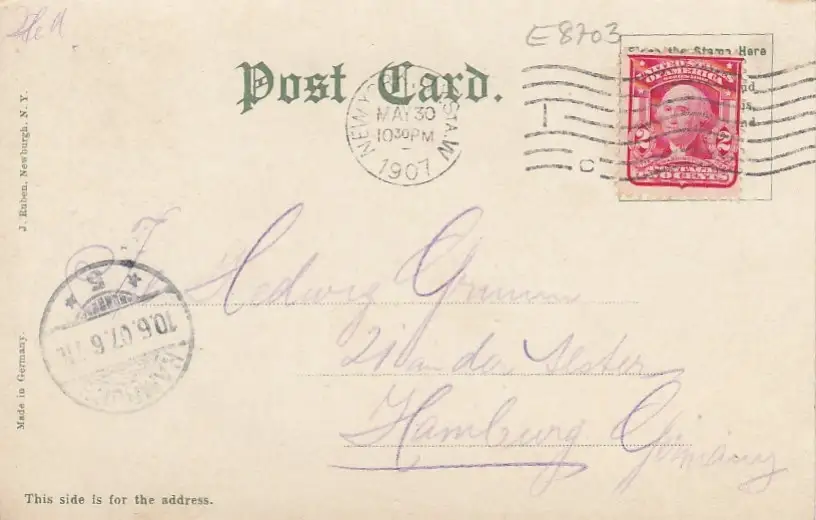 E8703
Post Card.
Place the Stamp Here
NEW YORK, N.Y. STA. W
MAY 30
10 30 PM
1907
C
UNITED STATES
OF AMERICA
2 2
TWO CENTS
J. Ruben, Newburgh, N. Y.
Made in Germany.
5
10.6.07.6
HAMBURG
Hedwig Grimm
21 an der Alster
Hamburg Germany
This side is for the address.